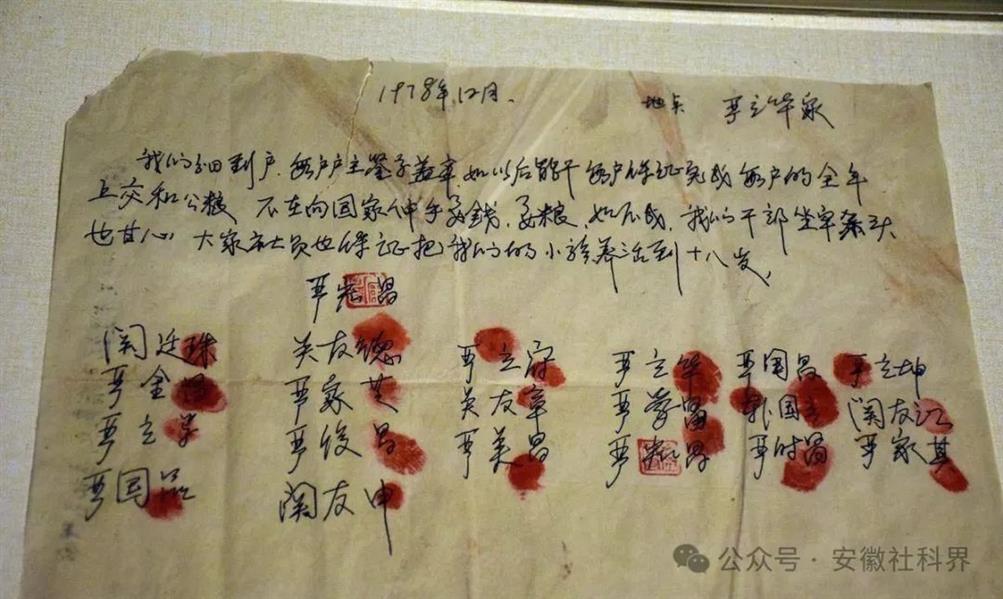 1978年12月. 地点 严立华家
我们分田到户,每户户主签字盖章,如以后能干,每户保证完成每户的全年
上交和公粮 不在向国家伸手要钱,要粮,如不成,我们干部坐牢杀头
也甘心,大家社员也保证把我们的小孩养活到十八岁,
严宏昌
关廷珠 关友德 严立符 严立华 严国昌 严立坤
严金昌 严家芝 关友章 严学昌 韩国云 关友江
严立学 严俊昌 严美昌 严 昌 严 昌 严家其
严国品 关友申
公众号·安徽社科界